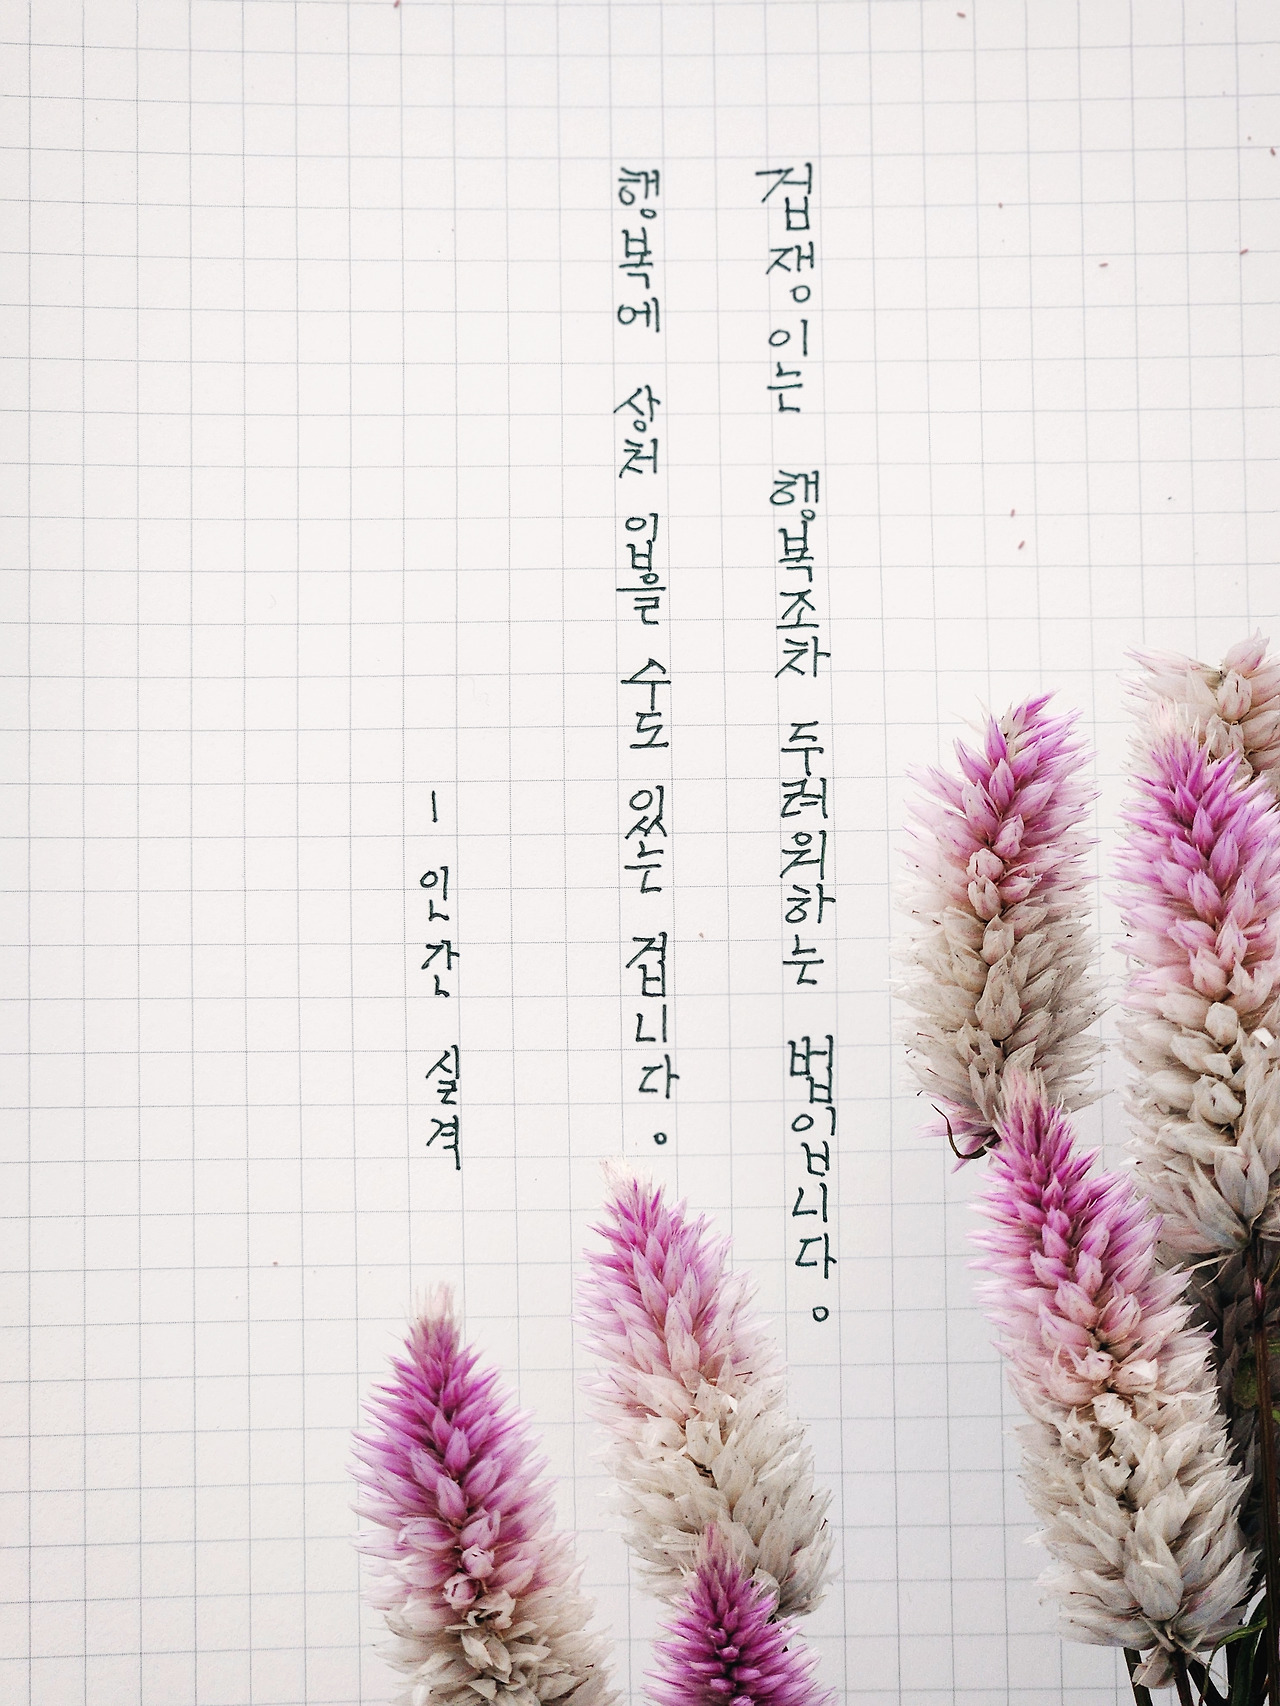 겁쟁이는 행복조차 두려워하는 법입니다。
행복에 상처 입을 수도 있는 겁니다。
- 인간 실격